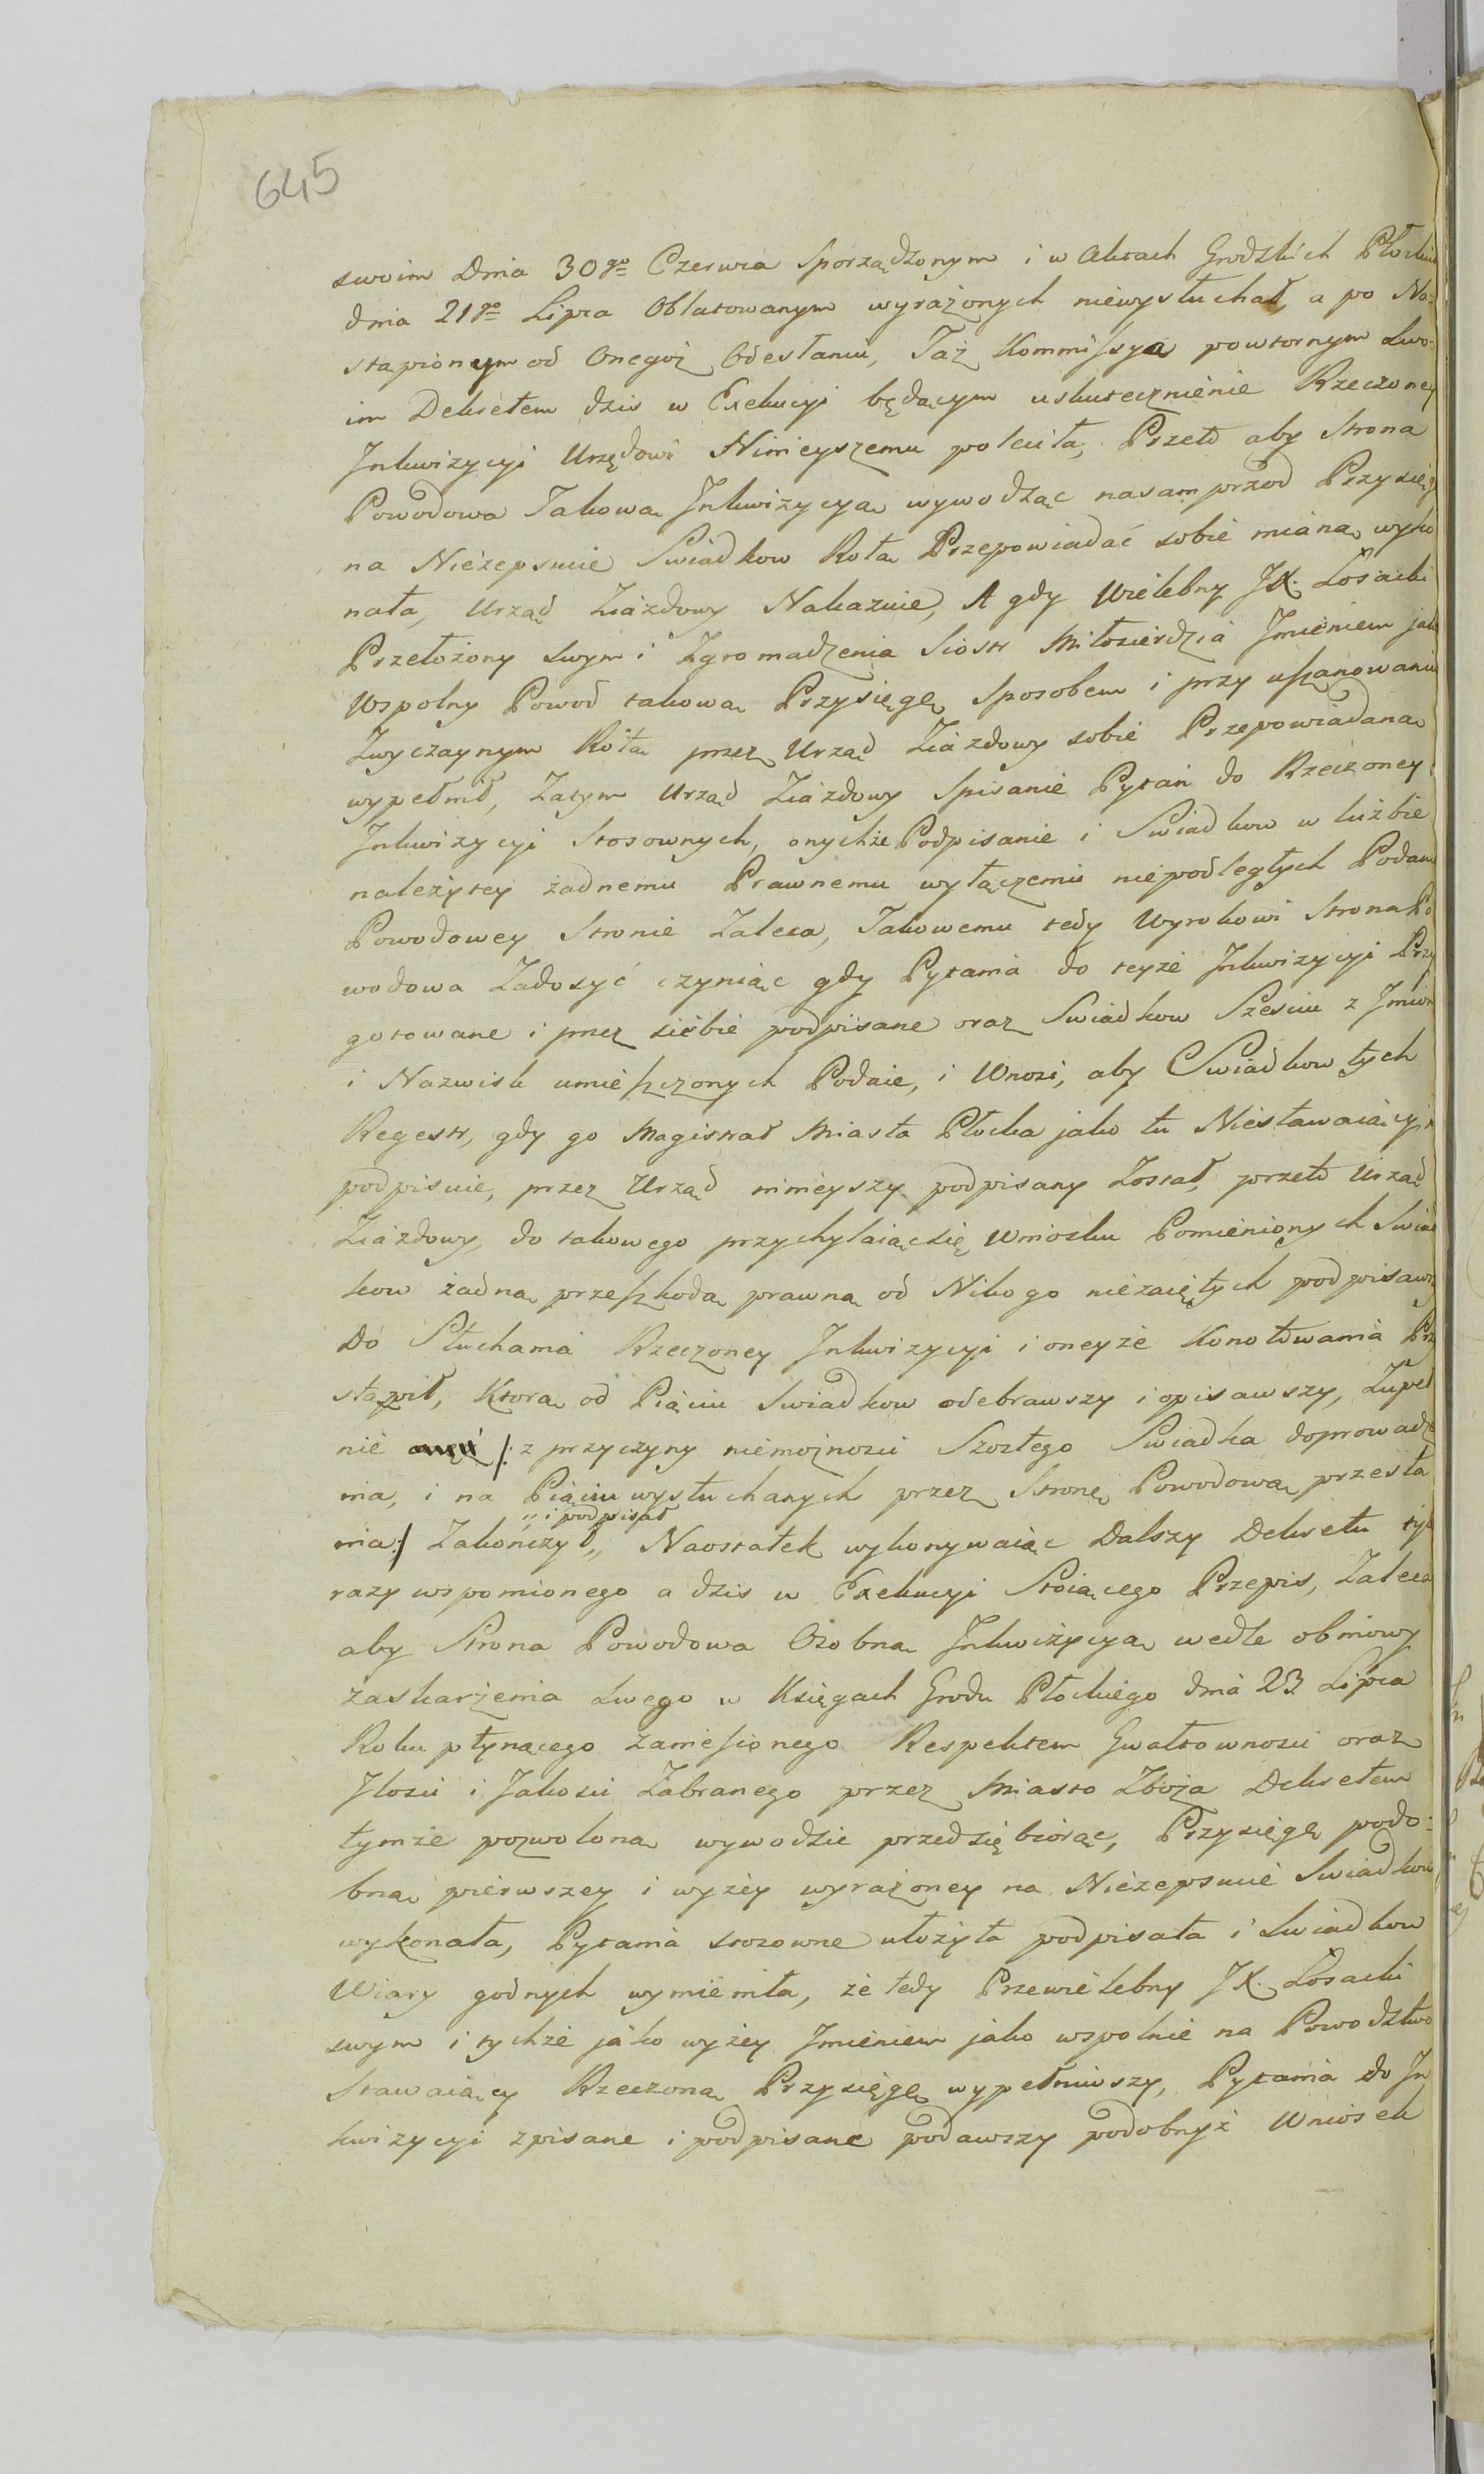 645
swoim Dnia 30go Czerwca Sporządzonym i w Aktach Grodzkich Płockich
dnia 21go Lipca Oblatowanym wyrażonych niewysłuchał, a po Na-
stąpionym od Onegoż Odesłaniu, Taż Kommissya powtornym Swo-
im Dekretem dzis w Exekucyi będącym uskutecznienie Rzeczoney
Inkwizycyi Urzędowi Ninieyszemu poleciła, Przeto aby Strona
Powodowa Takową Inkwizycyą wywodząc nasamprzod Przysięgę
na Niezepsucie Swiadkow Rotą Przepowiadać sobie mianą wyko
nała, Urząd Ziazdowy Nakazuie, A gdy Wielebny JX. Łosacki
Przełożony Swym i Zgromadzenia Siostr Miłosierdzia Imieniem jako
Wspolny Powod takową Przysięgę Sposobem i przy uszanowaniu
Zwyczaynym Rotą przez Urząd Ziazdowy sobie Przepowiadaną
wypełnił, Zatym Urząd Ziazdowy Spisanie Pytań do Rzeczoney
Inkwizycyi Stosownych, onychże Podpisanie i Swiadkow w liczbie
należytey żadnemu Prawnemu wyłączeniu niepodległych Podanie
Powodowey Stronie Zaleca, Takowemu tedy Wyrokowi Strona Po
wodowa Zadosyć czyniąc gdy Pytania do teyże Inkwizycyi Przy
gotowane i przez siebie podpisane oraz Swiadkow Szesciu z Imion
i Nazwisk umieszczonych Podaie, i Wnosi, aby Swiadkow tych
Regestr, gdy go Magistrat Miasta Płocka jako tu Niestawaiący
podpisuie, przez Urząd ninieyszy podpisany Został, przeto Urząd
Ziazdowy do takowego przychylaiąc się Wniosku Pomienionych Swiad
kow żadną przeszkodą prawną od Nikogo niezaiętych podpisawszy
Do Słuchania Rzeczoney Inkwizycyi i oneyże Konotowania Przy
stąpił, Ktorą od Pięciu Swiadkow odebrawszy i opisawszy, Zupeł
nie /: z przyczyny niemożnosci Szostego Swiadka doprowadze
nia, i na Pięciu wysłuchanych przez Stronę Powodową przesta
„ i podpisał
nia :/ Zakończył „ Naostatek wykonywaiąc Dalszy Dekretu tyle
razy wspomionego a dzis w Exekucyi Stoiącego Przepis, Zaleca
aby Strona Powodowa Osobną Inkwizycyą wedle obmowy
zaskarżenia Swego w Księgach Grodu Płockiego dnia 23 Lipca
Roku płynącego zaniesionego Respektem Gwałtownosci oraz
Ilosci i Jakosci Zabranego przez Miasto Zboża Dekretem
tymże pozwoloną wywodzie przedsiębiorąc, Przysięgę podo-
bną pierwszey i wyżey wyrażoney na Niezepsucie Swiadkow
wykonała, Pytania stosowne ułożyła podpisała i Swiadkow
Wiary godnych wymieniła, że tedy Przewielebny JX. Łosacki
swym i tychże jako wyżey Imieniem jako wspolnie na Powodztwo
Stawaiący Rzeczoną Przysięgę wypełniwszy, Pytania do In
kwizycyi zpisane i podpisane podawszy podobnyż Wniosek